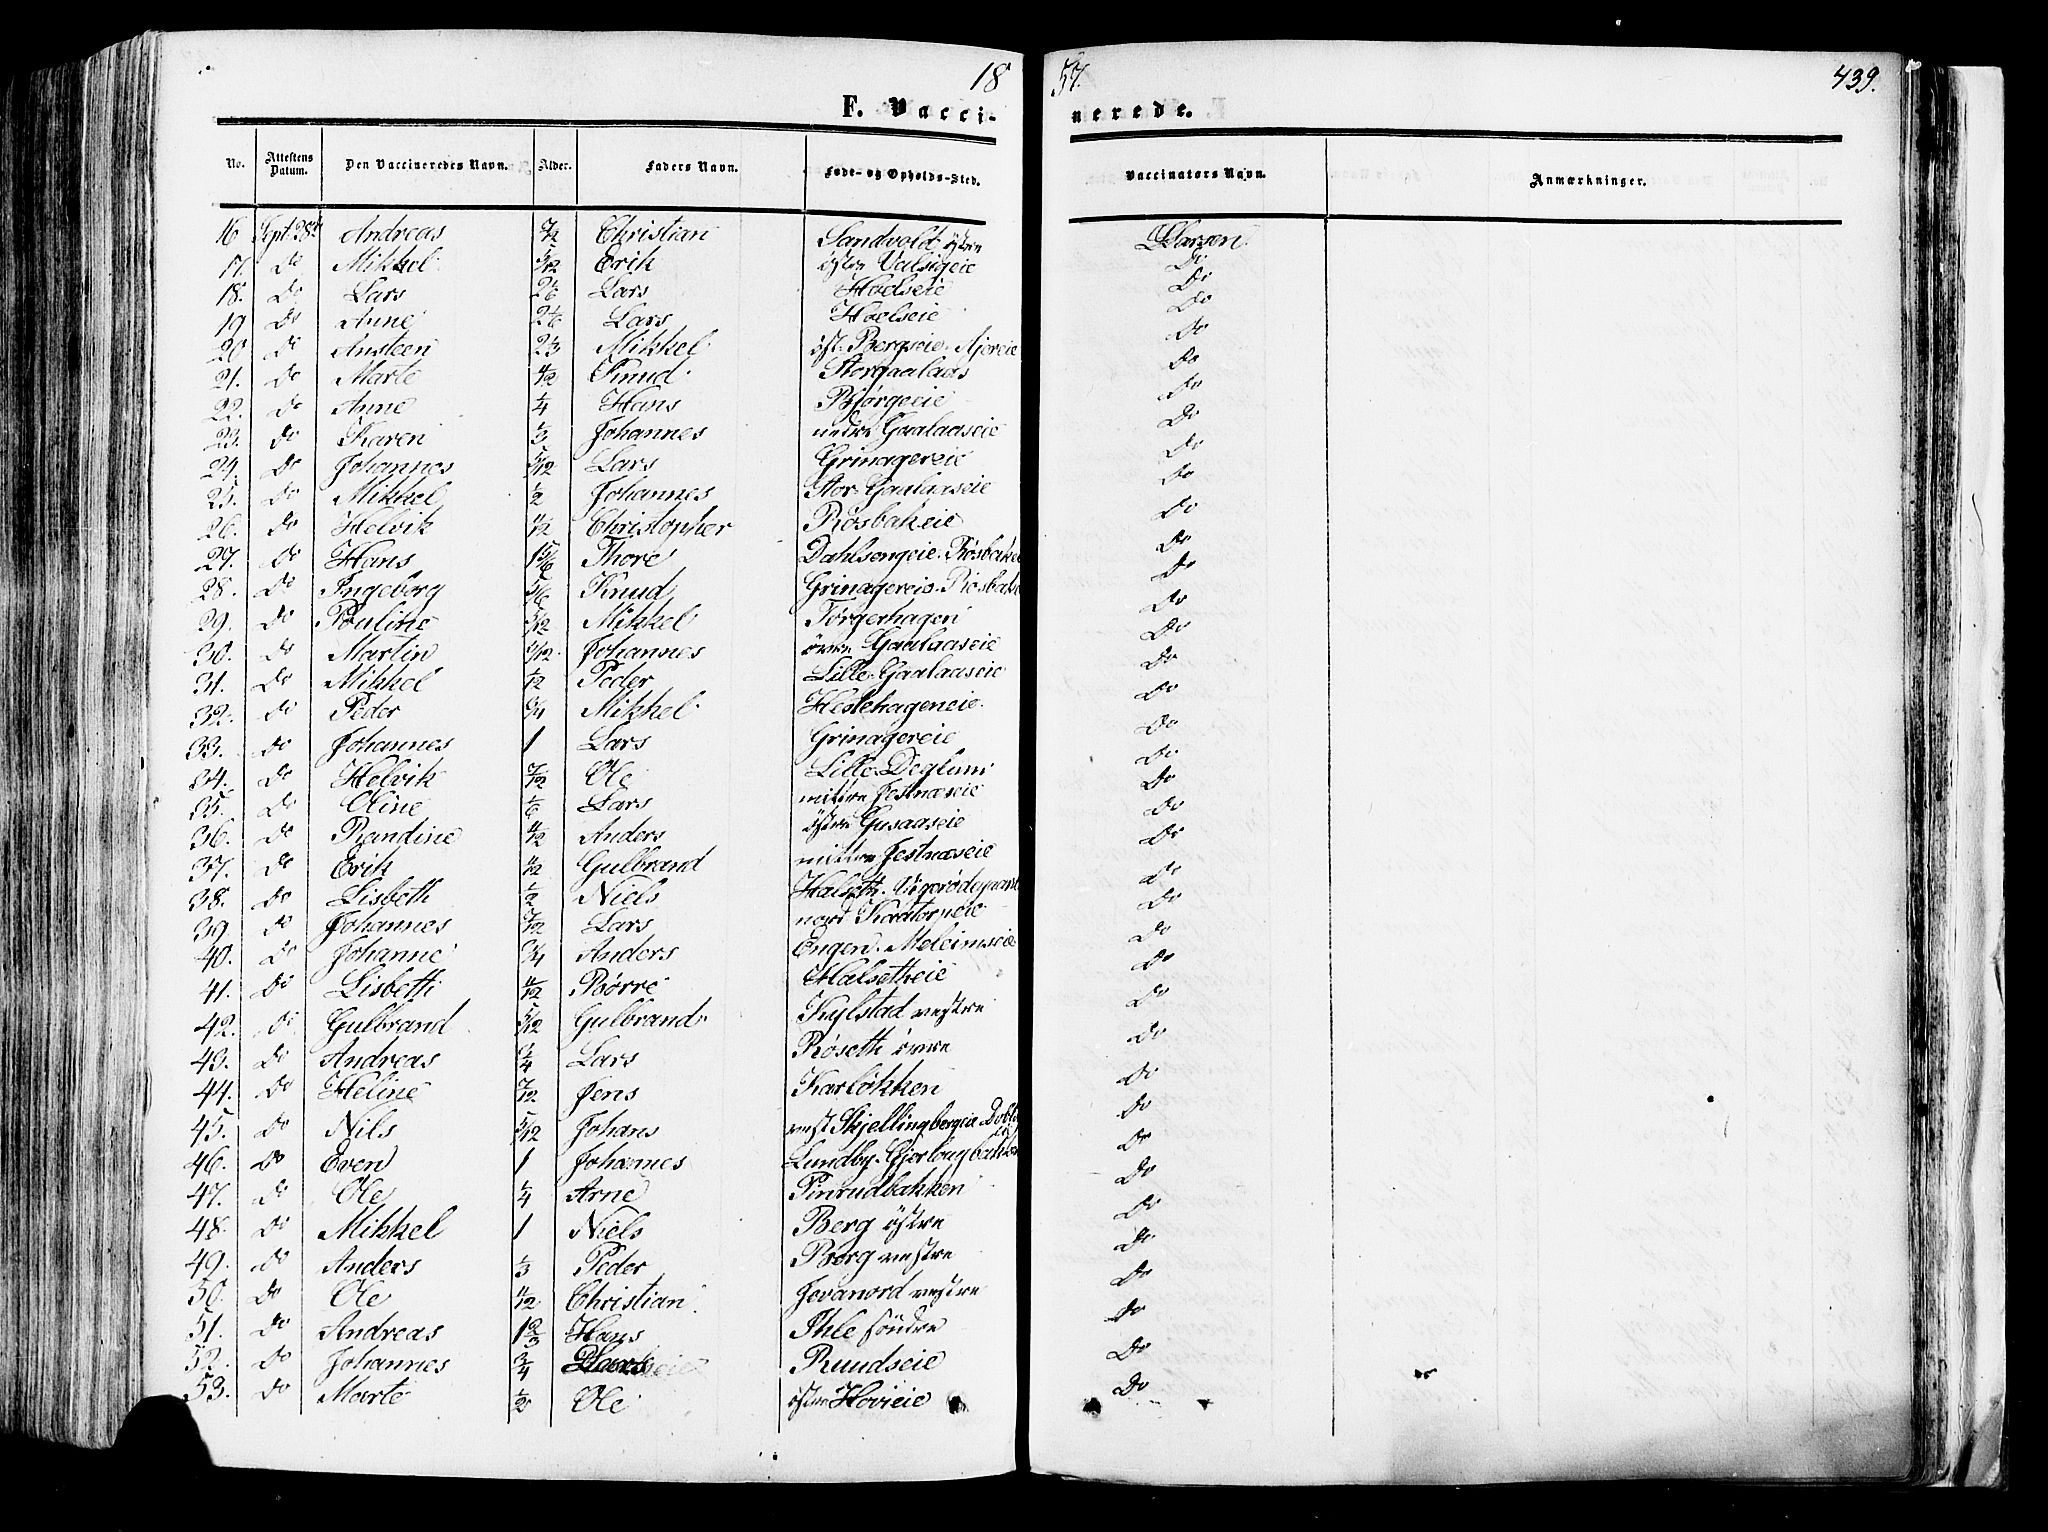 18 57. 439.
F. Vaccinerede.
No. Attestens Datum. Den Vaccineredes Navn. Alder. Faders Navn. Føde- og Opholds-Sted. Vaccinators Navn. Anmærkninger.
16 Sept. 28de Andreas Christian Sandvold östre Larsen
17. Do Mikkel 5/12 Erik östre Valsigeie Do
18. Do Lars 2 1/6 Lars Hoelseie Do
19 Do Anne 2 1/6 Lars Hoelseie Do
20 Do Ansteen 2 1/3 Mikkel öst. Bergseie Do
21. Do Marte 4/12 Knud Storgaalaas Do
22. Do Anne 1/4 Hans Bjørgeeie Do
23. Do Karen 1/3 Johannes nedre Gaalaaseie Do
24. Do Johannes 5/12 Lars Grinagereie Do
25. Do Mikkel 1/2 Johannes Stor-Gaalaaseie Do
26. Do Helvik 4/12 Christopher Røsbakeie Do
27. Do Hans 1 5/6 Thore Dahlsengeie. Røsbakei Do
28. Do Ingeborg 5/6 Knud Grinagereie. Røsbake Do
29. Do Pouline 5/12 Mikkel Torgerhagen Do
30. Do Martin Johannes övre Gaalaaseie Do
31. Do Mikkel Peder Lille-Gaalaaseie Do
32. Do Peder 3/4 Mikkel Hestehageneie Do
33. Do Johannes 1 Lars Grinagereie Do
34. Do Helvik 7/12 Ole Lille Deglum Do
35. Do Oline 1/6 Lars mittre Festnæseie Do
36. Do Randine 4/12 Anders östre Gusaaseie Do
37. Do Erik 4/12 Gulbrand mittre Festnæseie Do
38. Do Lisbeth 1/2 Niels Halseth. Do
39. Do Johannes 7/12 Lars nord Do
40. Do Johanne 3/4 Anders Engen. Meleimseie Do
41. Do Lisbeth 4/12 Børre Halsetheie Do
42. Do Gulbrand 5/12 Gulbrand Kylstad vestre Do
43. Do Andreas 3/4 Lars Røseth övre Do
44. Do Heline 7/12 Jens Karløkken Do
45. Do Nils 5/12 Johans vest Skjellingbergeie Do
46. Do Even 1 Johannes Lundby. Do
47. Do Ole 1/4 Arne Pinrudbakken Do
48. Do Mikkel 1 Niels Berg östre Do
49. Do Anders 1/3 Peder Berg vestre Do
50. Do Ole 4/12 Christian Jevanord vestre Do
51. Do Andreas 1 2/3 Hans Ihle söndre Do
52. Do Johannes 3/4 Lars Rundseie Do
53. Do Marte 1/2 Ole östre Hovieie Do